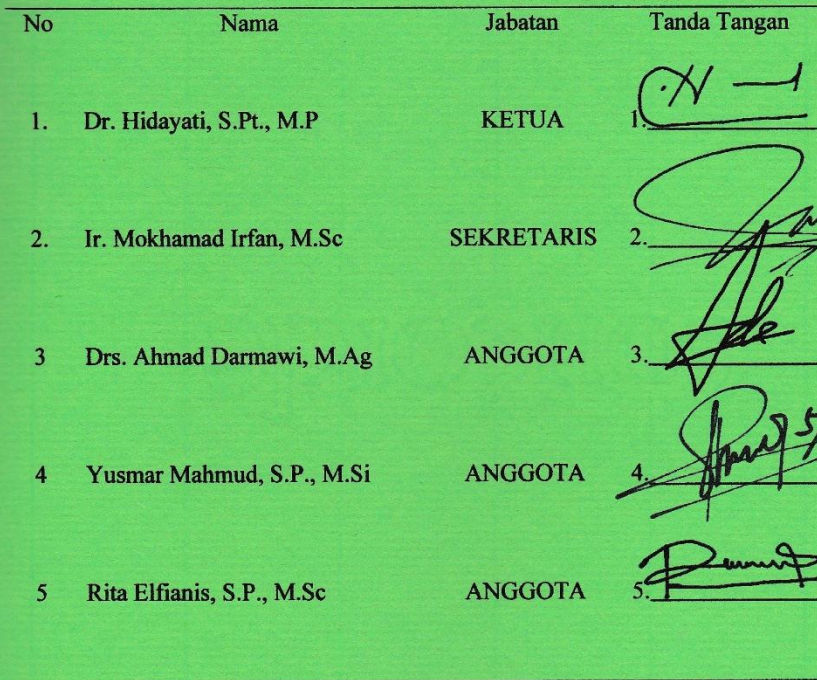 No Nama Jabatan Tanda Tangan
1. Dr. Hidayati, S.Pt., M.P KETUA 1.
2. Ir. Mokhamad Irfan, M.Sc SEKRETARIS 2.
3 Drs. Ahmad Darmawi, M.Ag ANGGOTA 3.
4 Yusmar Mahmud, S.P., M.Si ANGGOTA 4.
5 Rita Elfianis, S.P., M.Sc ANGGOTA 5.